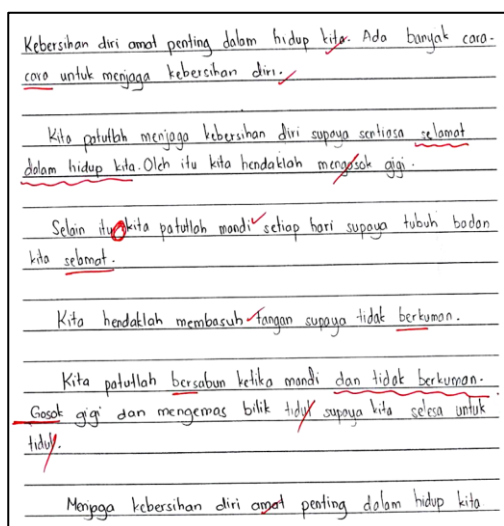 Kebersihan diri amat penting dalam hidup kita. Ada banyak cara-
cara untuk menjaga kebersihan diri.
Kita patutlah menjaga kebersihan diri supaya sentiasa selamat
dalam hidup kita. Oleh itu kita hendaklah mengosok gigi.
Selain itu kita patutlah mandi setiap hari supaya tubuh badan
kita selamat.
Kita hendaklah membasuh tangan supaya tidak berkuman.
Kita patutlah bersabun ketika mandi dan tidak berkuman.
Gosok gigi dan mengemas bilik tidul supaya kita selesa untuk
tidul.
Menjaga kebersihan diri amat penting dalam hidup kita